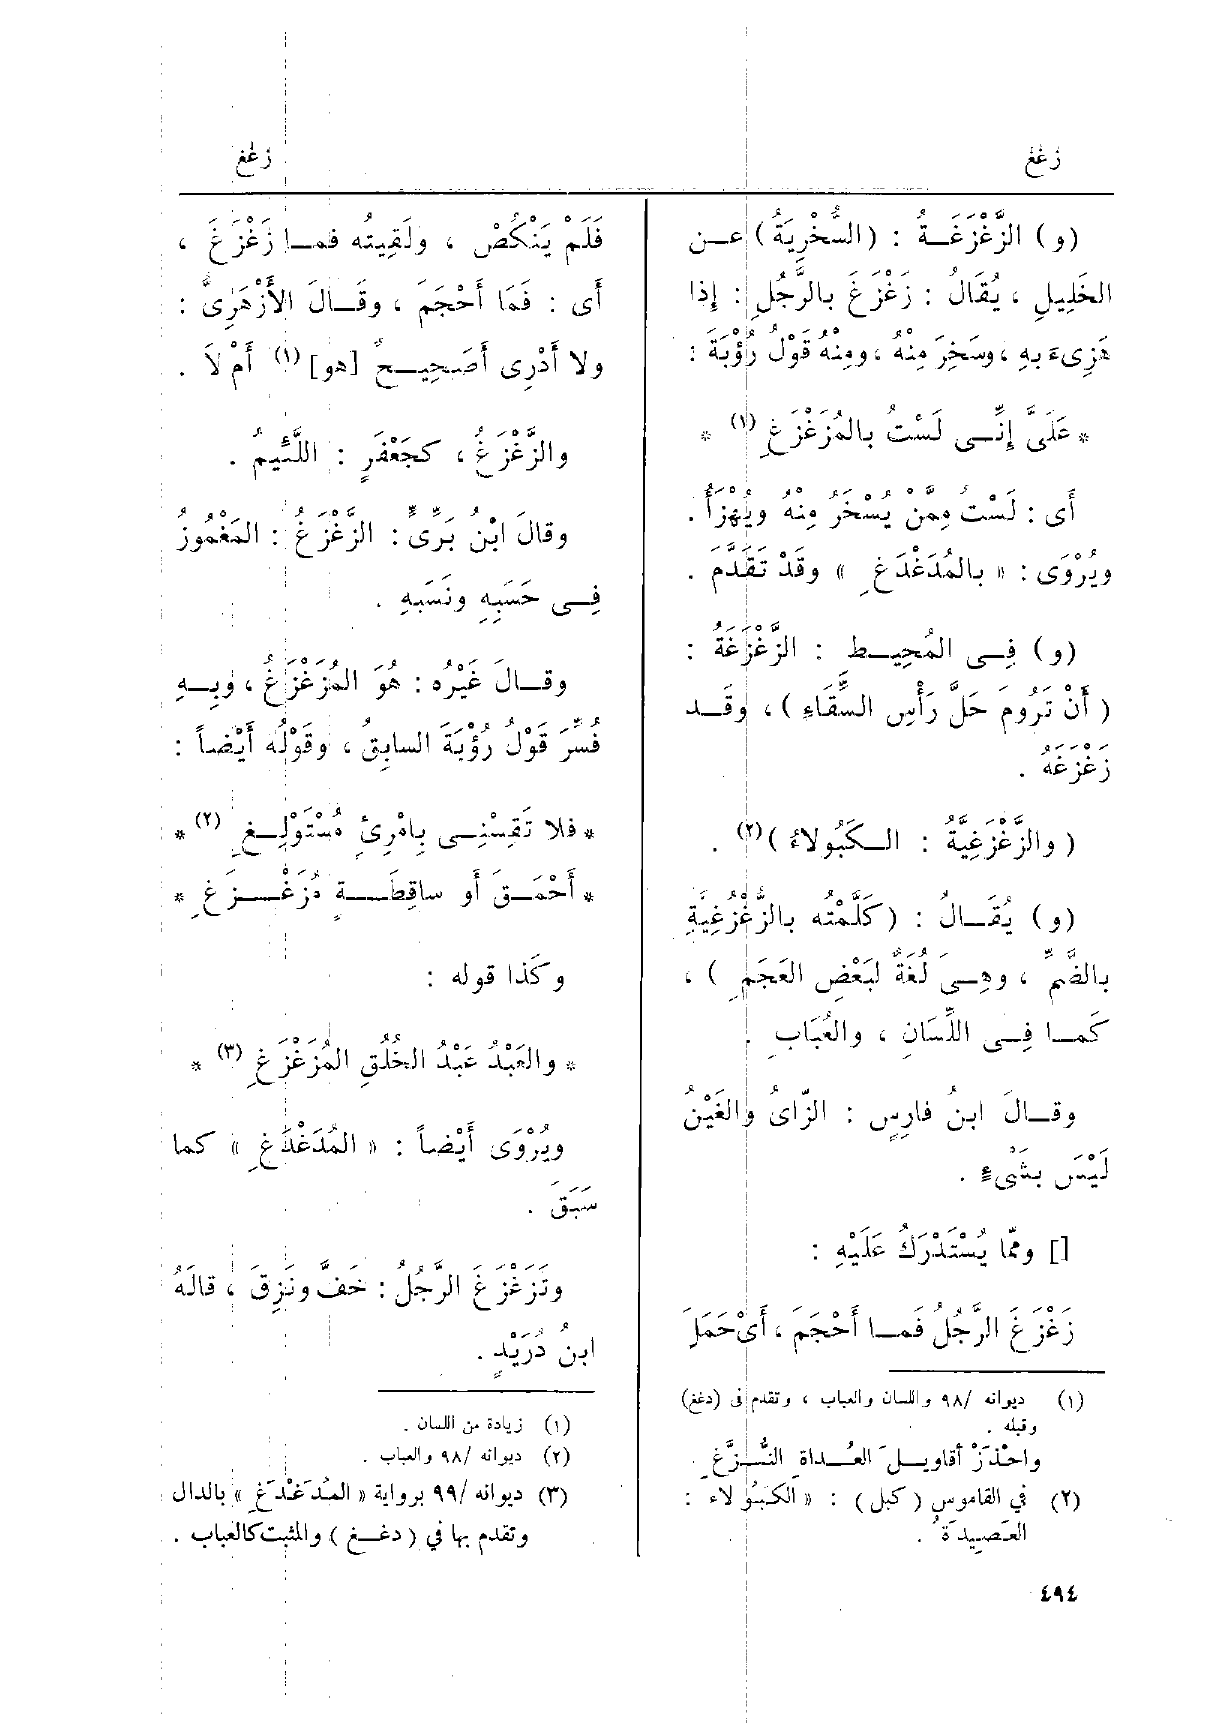 زغغ
زغغ
(و) الزَّغْزَغَةُ : (السُّخْرِيَةُ) عن
الخَلِيلِ ، يُقَالُ : زَغْزَغَ بالرَّجُلِ : إِذا
هَزِىءَ بهِ ، وسَخِرَ مِنْهُ ، ومِنْهُ قَوْلُ رُؤْبَةَ :
* عَلَىَّ إِنِّى لَسْتُ بالمُزَغْزَغِ (١) *
أَى : لَسْتُ مِمَّنْ يُسْخَرُ مِنْهُ ويُهْزَأُ .
ويُرْوَى : « بالمُدَغْدَغِ » وقَدْ تَقَدَّمَ .
(و) فِى المُحِيطِ : الزَّغْزَغَةُ :
( أَنْ تَرُومَ حَلَّ رَأْسِ السِّقَاءِ ) ، وقَد
زَغْزَغَهُ .
( والزَّغْزَغِيَّةُ : الكَبُولاءُ )(٢) .
(و) يُقَالُ : (كَلَّمْتُه بالزُّغْزُغِيَّةِ
بالضَّمِّ ، وهِىَ لُغَةٌ لبَعْضِ العَجَمِ ) ،
كَما فِى اللِّسَانِ ، والعُبَابِ .
وقالَ ابنُ فارِسٍ : الزّاىُ والغَيْنُ
لَيْسَ بشَىْءٍ .
[] وممّا يُسْتَدْرَكُ عَلَيْهِ :
زَغْزَغَ الرَّجُلُ فَمَا أَحْجَمَ ، أَىْ حَمَلَ
(١) ديوانه /٩٨ واللسان والعباب ، وتقدم فى (دغغ)
وقبله .
واحْذَرْ أقاويلَ العُداةِ النُّزَّغِ
(٢) في القاموس ( كبل ) : « الكَبُولاء :
العَصِيدَةُ .
فَلَمْ يَنْكُصْ ، ولَقِيتُه فما زَغْزَغَ ،
أَى : فَمَا أَحْجَمَ ، وقَالَ الأَزْهَرِىُّ :
ولا أَدْرِى أَصَحِيحٌ [هو](١) أَمْ لاَ .
والزَّغْزَغُ ، كجَعْفَرٍ : اللَّئِيمُ .
وقالَ ابْنُ بَرِّىٍّ : الزَّغْزَغُ : المَغْمُوزُ
فِى حَسَبِهِ ونَسَبِهِ .
وقالَ غَيْرُه : هُوَ المُزَغْزَغُ ، وبِهِ
فُسِّرَ قَوْلُ رُؤْبَةَ السابِقُ ، وقَوْلُه أَيْضاً :
* فلا تَقِسْنِى بِامْرِئٍ مُسْتَوْلِغِ (٢) *
* أَحْمَقَ أو ساقِطَةٍ مُزَغْزَغِ *
وكَذا قوله :
* والعَبْدُ عَبْدُ الخُلُقِ المُزَغْزَغِ (٣) *
ويُرْوَى أَيْضاً : « المُدَغْدَغِ » كما
سَبَقَ .
وتَزَغْزَغَ الرَّجُلُ : خَفَّ ونَزِقَ ، قالَهُ
ابنُ دُرَيْدٍ .
(١) زيادة من اللسان .
(٢) ديوانه /٩٨ والعباب .
(٣) ديوانه /٩٩ برواية « المُدَغْدَغِ » بالدال
وتقدم بها في ( دغغ ) والمثبت كالعباب .
٤٩٤